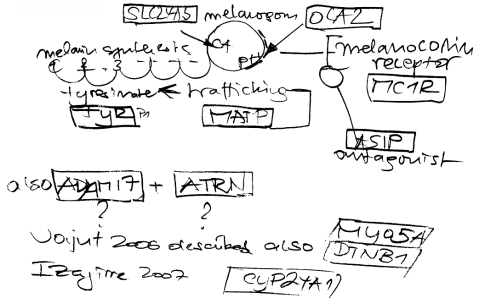 SLC24A5 melanosom OCA2
Ca
pH
melanin synthesis
1 2 3
melanocortin
receptor
MC1R
tyrosinase trafficking
TYR MATP
ASIP
antagonist
also ADAM17 + ATRN
? ?
2006 described also MYO5A
DTNB1
2007 CYP24A1